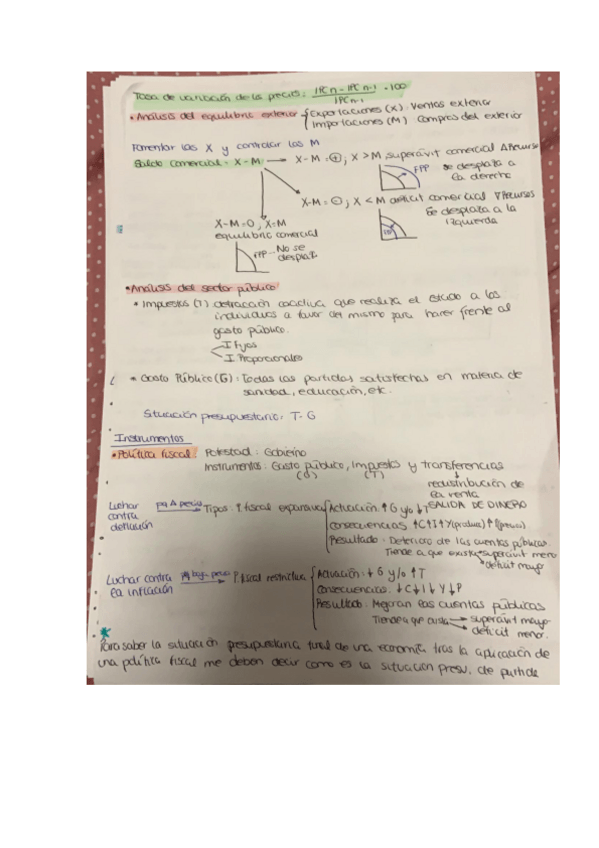 Tasa de variación de los precios: IPCn - IPCn-1 / IPCn-1 · 100
• Análisis del equilibrio exterior
Exportaciones (X): Ventas exterior
Importaciones (M): Compras del exterior
Fomentar las X y controlar las M
Saldo Comercial = X-M → X-M = ⊕; X > M superávit comercial Δ Recursos
FPP se desplaza a la derecha
X-M = ⊖; X < M déficit comercial ∇ Recursos
Se desplaza a la izquierda
X-M=0, X=M
equilibrio comercial
FPP... No se desplaza
• Análisis del sector público
* Impuestos (T) detracción coactiva que realiza el estado a los
individuos a favor del mismo para hacer frente al
gasto público.
I Fijos
I. Proporcionales
* Gasto Público (G): Todas las partidas satisfechas en materia de
sanidad, educación, etc.
Situación presupuestaria: T-G
Instrumentos
• Política fiscal: Potestad: Gobierno
Instrumentos: Gasto público, Impuestos y transferencias
(G) (T)
redistribución de
la renta
SALIDA DE DINERO
Luchar contra deflación
Tipos: P fiscal expansiva
Actuación: ↑G y/o ↓T
Consecuencias ↑C↑I↑Y(produce)↑P(precios)
Resultado: Deterioro de las cuentas públicas.
Tiende a que exista superávit menor
déficit mayor
Luchar contra la inflación
P fiscal restrictiva
Actuación: ↓G y/o ↑T
Consecuencias: ↓C↓I↓Y↓P
Resultado: Mejoran las cuentas públicas
Tiende a que exista superávit mayor
déficit menor.
Para saber la situación presupuestaria final de una economía tras la aplicación de
una política fiscal me deben decir como es la situación presu. de partida